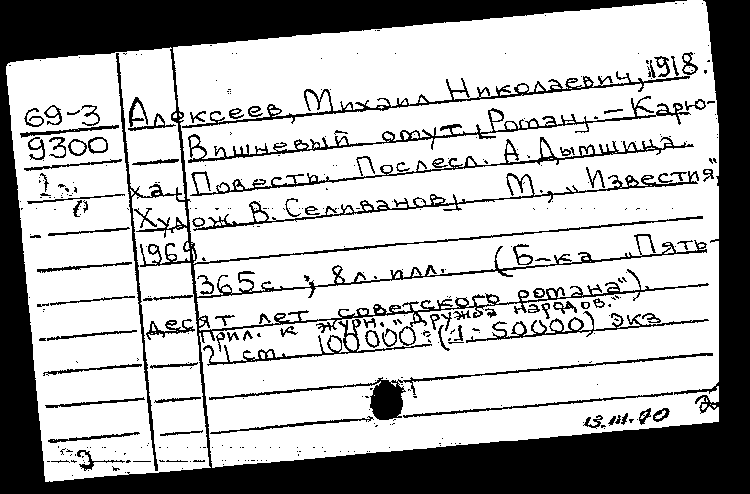 69-3 Алексеев, Михаил Николаевич, 1918.
9300 Вишневый омут [Роман]. – Карю-
ха [Повесть]. Послесл. А. Дымшица.
Худож. В. Селиванов]. М., „Известия",
1969.
365 с. ; 8 л. илл. (Б-ка „Пять-
десят лет советского романа").
Прил. к журн. „Дружба народов."
21 см. 100000 : (1- 50000) экз
13.III.70